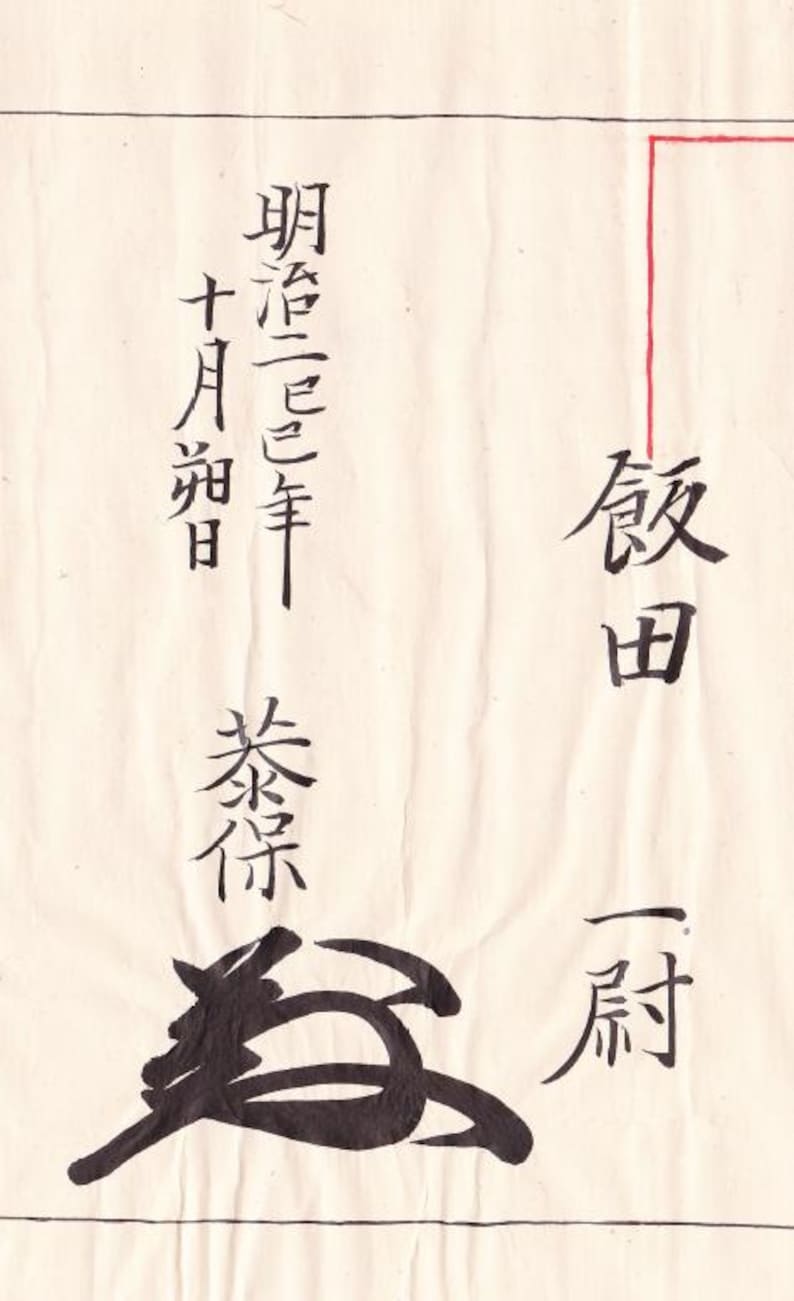 飯田 一尉
明治二己巳年
十月朔日
恭保